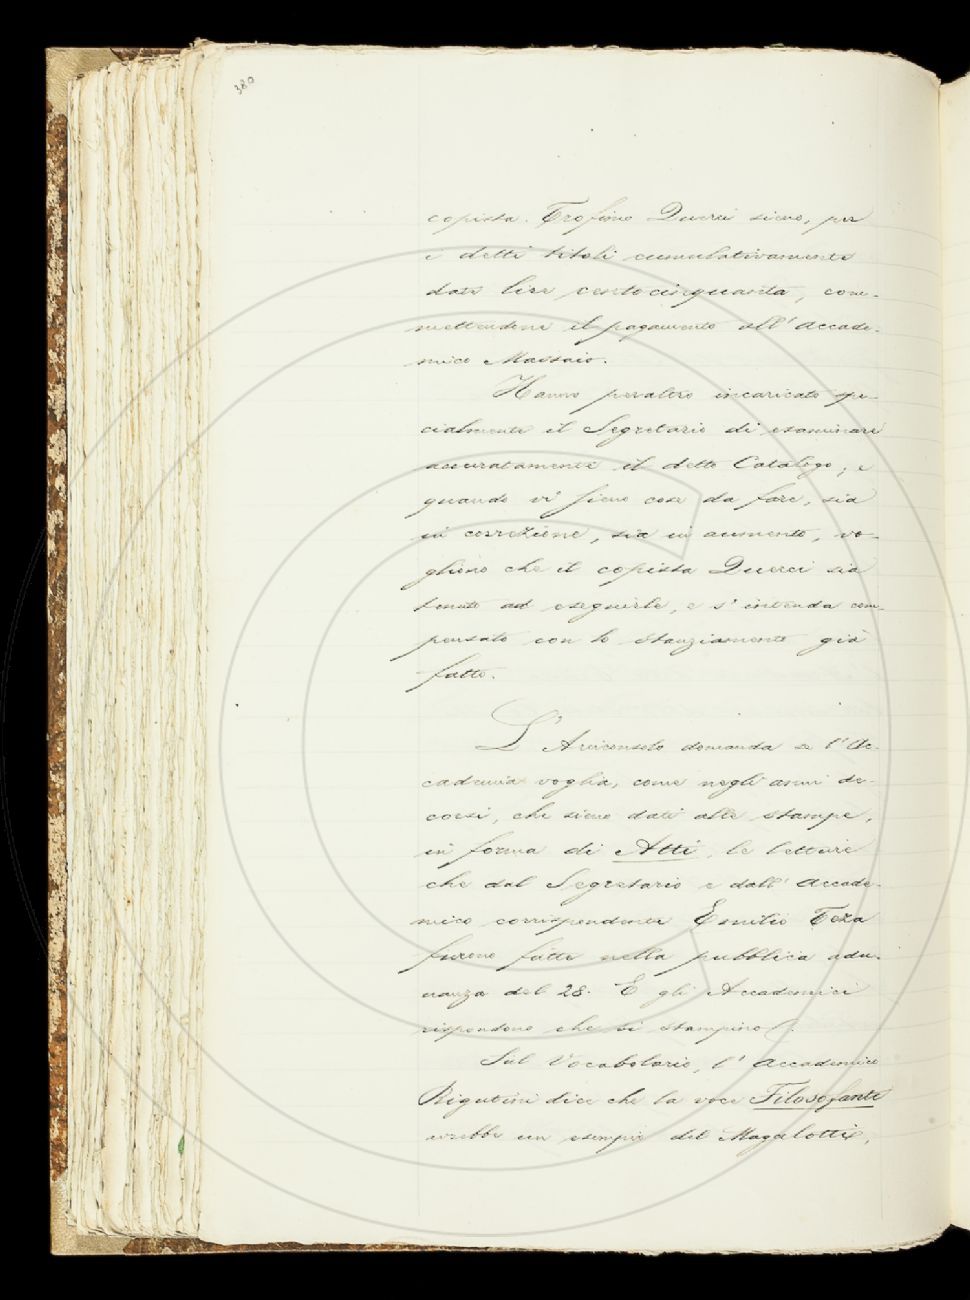 380
copista. Trofimo Querci sieno, per
i detti titoli cumulativamente
date lire centocinquanta, com-
mettendone il pagamento all'Accade-
mico Massaio.
Hanno peraltro incaricato spe-
cialmente il Segretario di esaminare
accuratamente il detto Catalogo; e
quando vi sieno cose da fare, sia
in correzione, sia in aumento, vo-
gliono che il copista Querci sia
tenuto ad eseguirle, e s'intenda com-
pensato con lo stanziamento già
fatto.
L'Arciconsolo domanda se l'Ac-
cademia voglia, come negli anni de-
corsi, che sieno date alle stampe,
in forma di Atti, le letture
che dal Segretario e dall'Accade-
mico corrispondente Emilio Teza
furono fatte nella pubblica adu-
nanza del 28. E gli Accademici
rispondono che si stampino.
Sul Vocabolario, l'Accademico
Rigutini dice che la voce Filosofante
avrebbe un esempio del Magalotti,